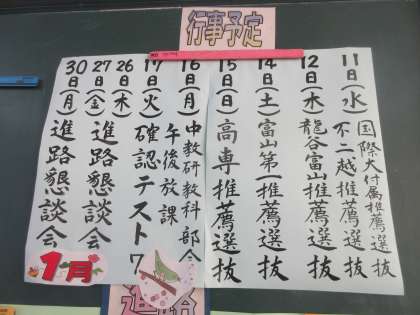 行事予定
11日(水)国際大付属推薦選抜
不二越推薦選抜
12日(木)龍谷富山推薦選抜
14日(土)富山第一推薦選抜
15日(日)高専推薦選抜
16日(月)中教研教科部会
午後放課
17日(火)確認テスト7
26日(木)
27日(金)進路懇談会
30日(月)進路懇談会
1月